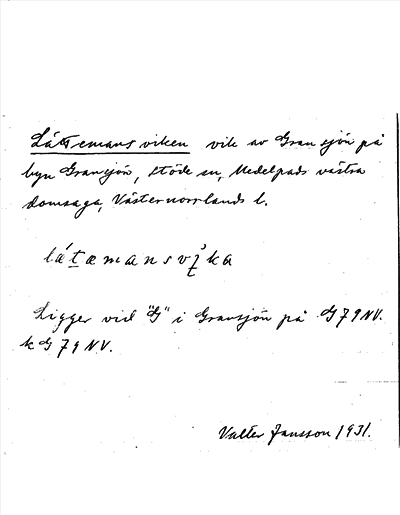 Låttemansviken vik av Gransjön på
byn Gransjön, Stöde sn, Medelpads västra
domsaga, Västernorrlands l.
Ligger vid "G" i Gransjön på G 79 NV.
k G 79 NV.
Valter Jansson 1931.